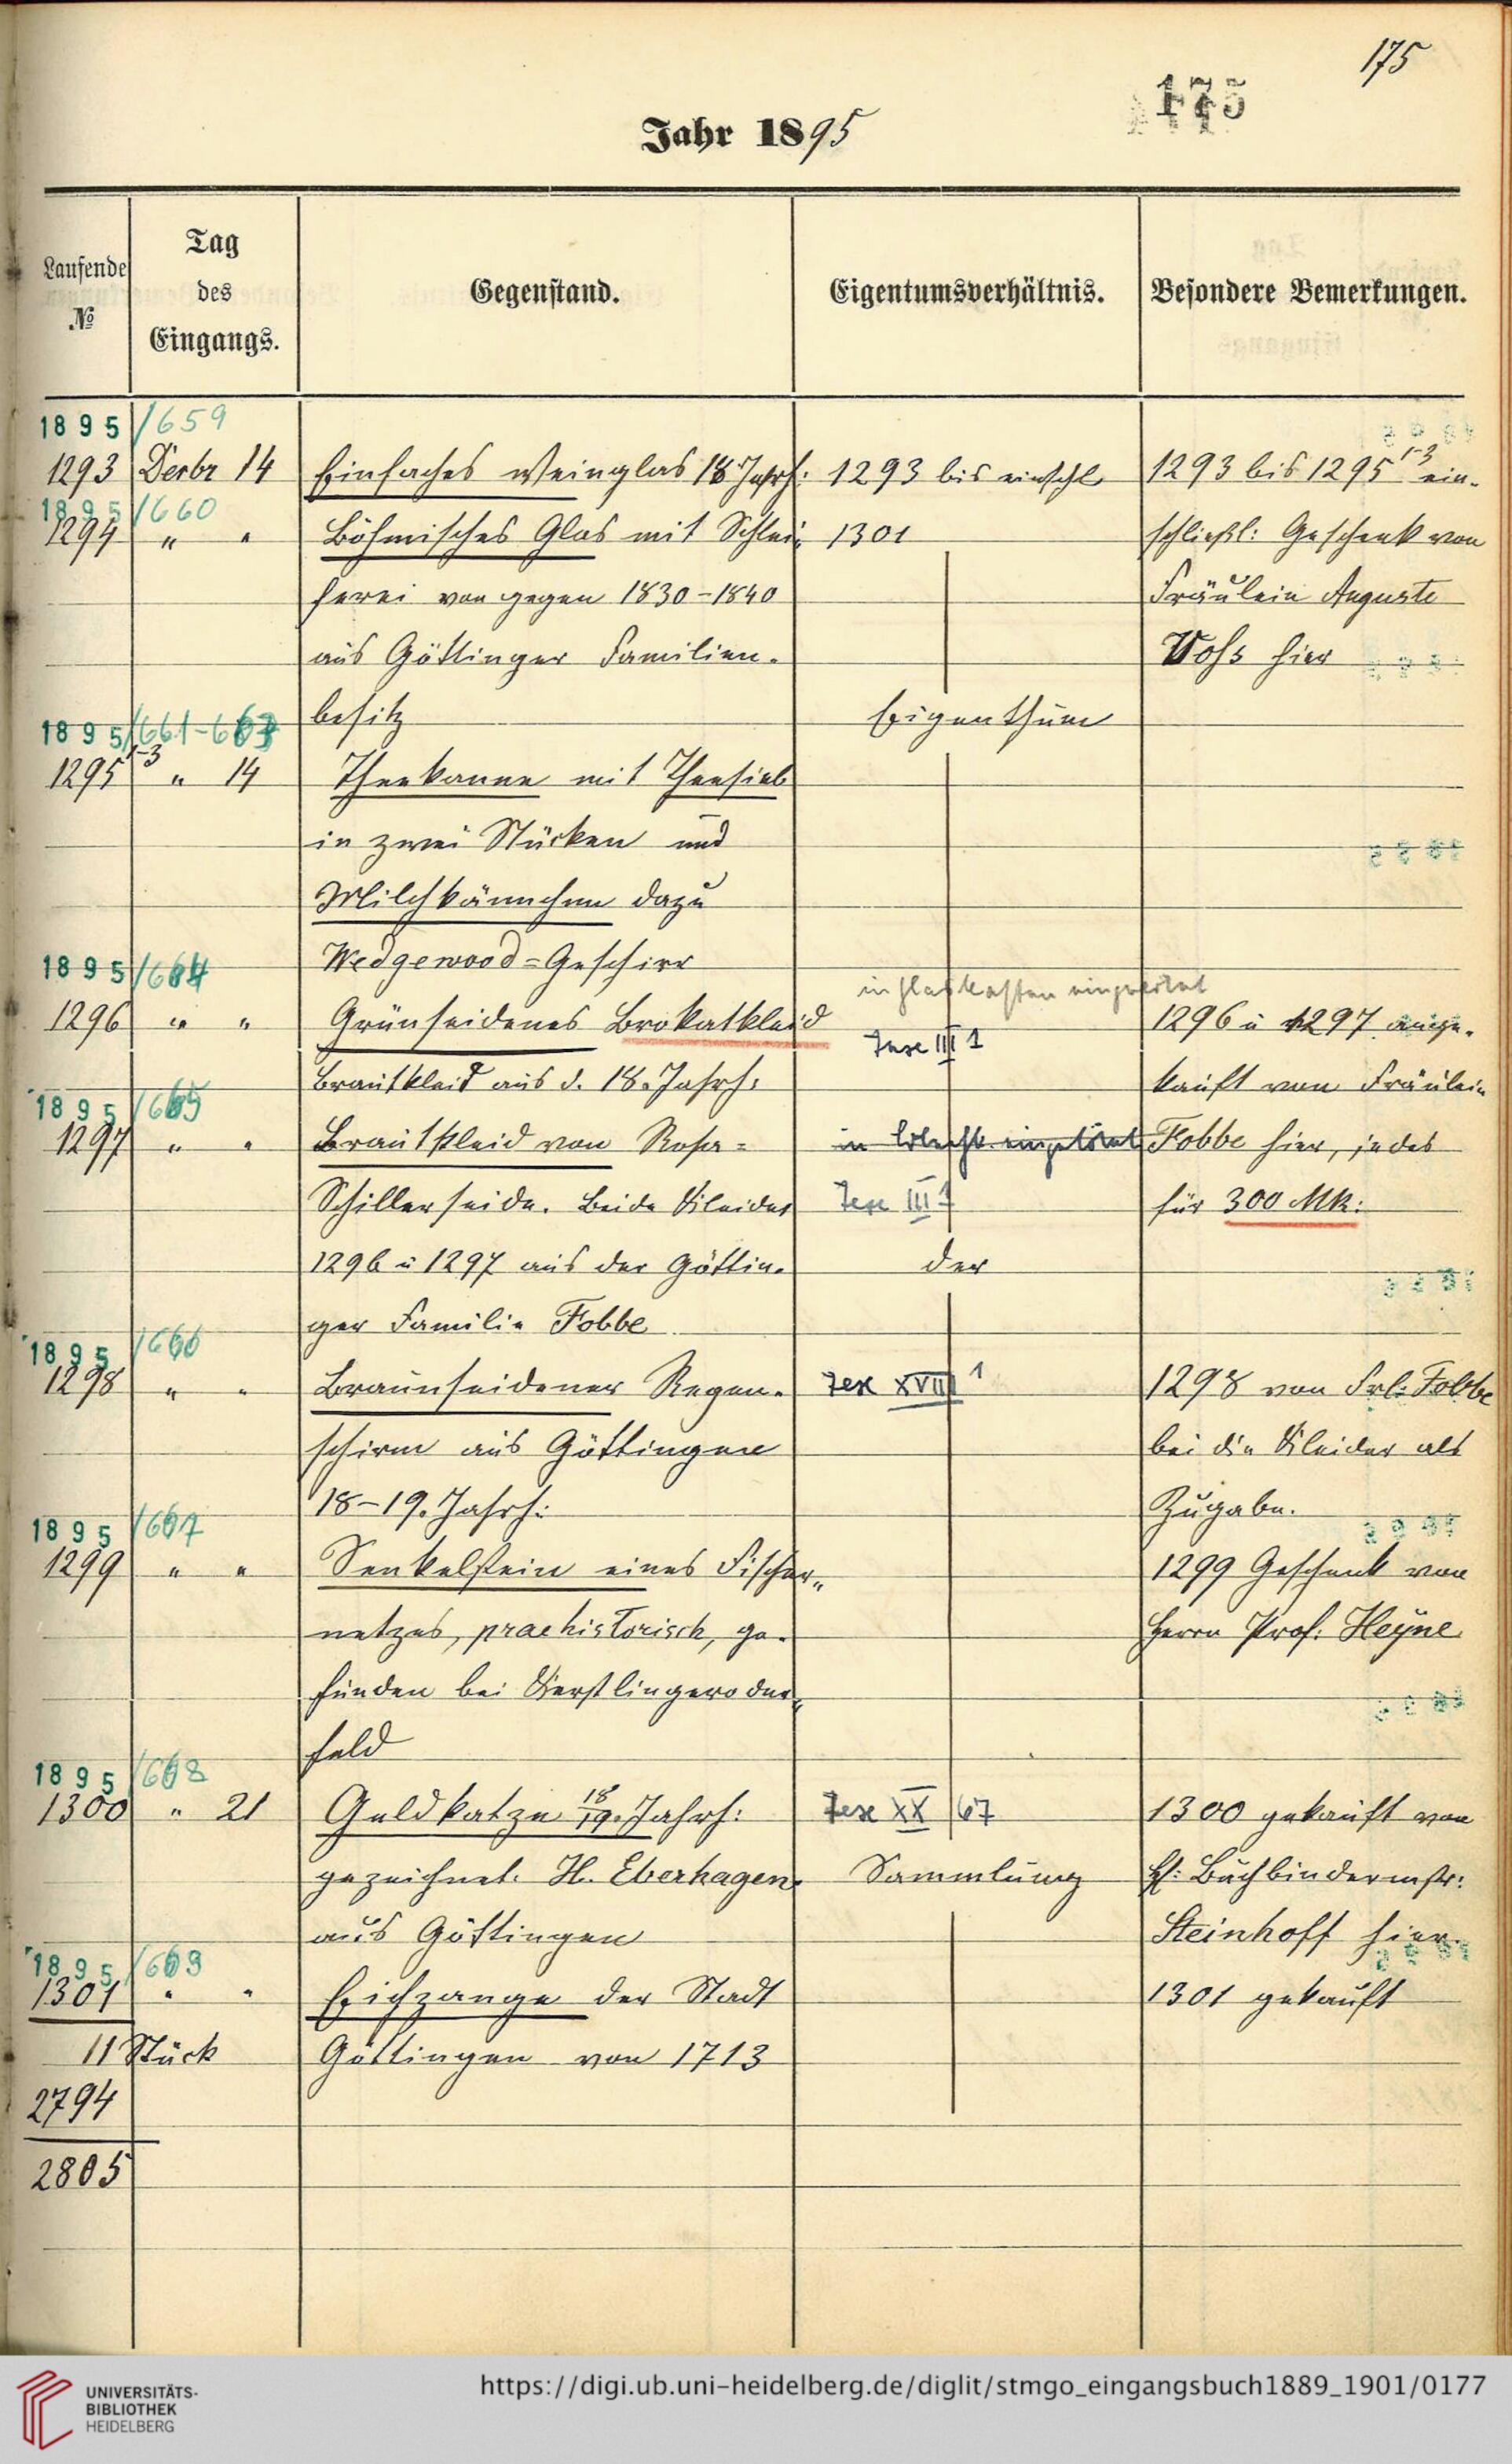 175
175
Jahr 1895
Laufende
№
Tag
des
Eingangs.
Gegenstand.
Eigentumsverhältnis.
Besondere Bemerkungen.
1895/659
1293 Decbr 14 Einfaches Weinglas 18. Jahrh: 1293 bis einschl. 1293 bis 1295 1-3 ein-
1895/660
1294 " " Böhmisches Glas mit Schlei- 1301 schließl: Geschenk von
ferei von gegen 1830-1840 Fräulein Auguste
aus Göttinger Familien- Voss hier
besitz Eigenthum
1895/661-663
1295 1-3 " 14 Theekanne mit Theesieb
in zwei Stücken und
Milchkännchen dazu
Wedgewood=Geschirr
1895/664
in Glaskasten
1296 " " Grünseidenes Brokatkleid 1296 u 1297 ange-
III 1
Brautkleid aus d. 18. Jahrh: kauft von Fräulein
1895/665
1297 " " Brautkleid von Rosa= in Fobbe hier, jedes
Schillerseide. Beide Kleider III 1 für 300 Mk:
1296 u 1297 aus der Göttin- der
ger Familie Fobbe
1895/666
1298 " " Braunseidener Regen- XVIII 1 1298 von Frl: Fobbe
schirm aus Göttingen bei die Kleider als
18-19. Jahrh: Zugabe.
1895/667
1299 " " Senkelstein eines Fischer- 1299 Geschenk von
netzes, praehistorisch, ge- Herrn Prof: Heyne
funden bei Gerstlingeroder-
feld
1895/668
1300 " 21 Geldkatze 18/19. Jahrh: XX 67 1300 gekauft von
gezeichnet. H. Eberhagen Sammlung H: Buchbindermstr:
aus Göttingen Steinhoff hier.
1895/669
1301 " " Eichzange der Stadt 1301 gekauft
11 Stück Göttingen von 1713
2794
2805
UNIVERSITÄTS-
BIBLIOTHEK
HEIDELBERG
https://digi.ub.uni-heidelberg.de/diglit/stmgo_eingangsbuch1889_1901/0177